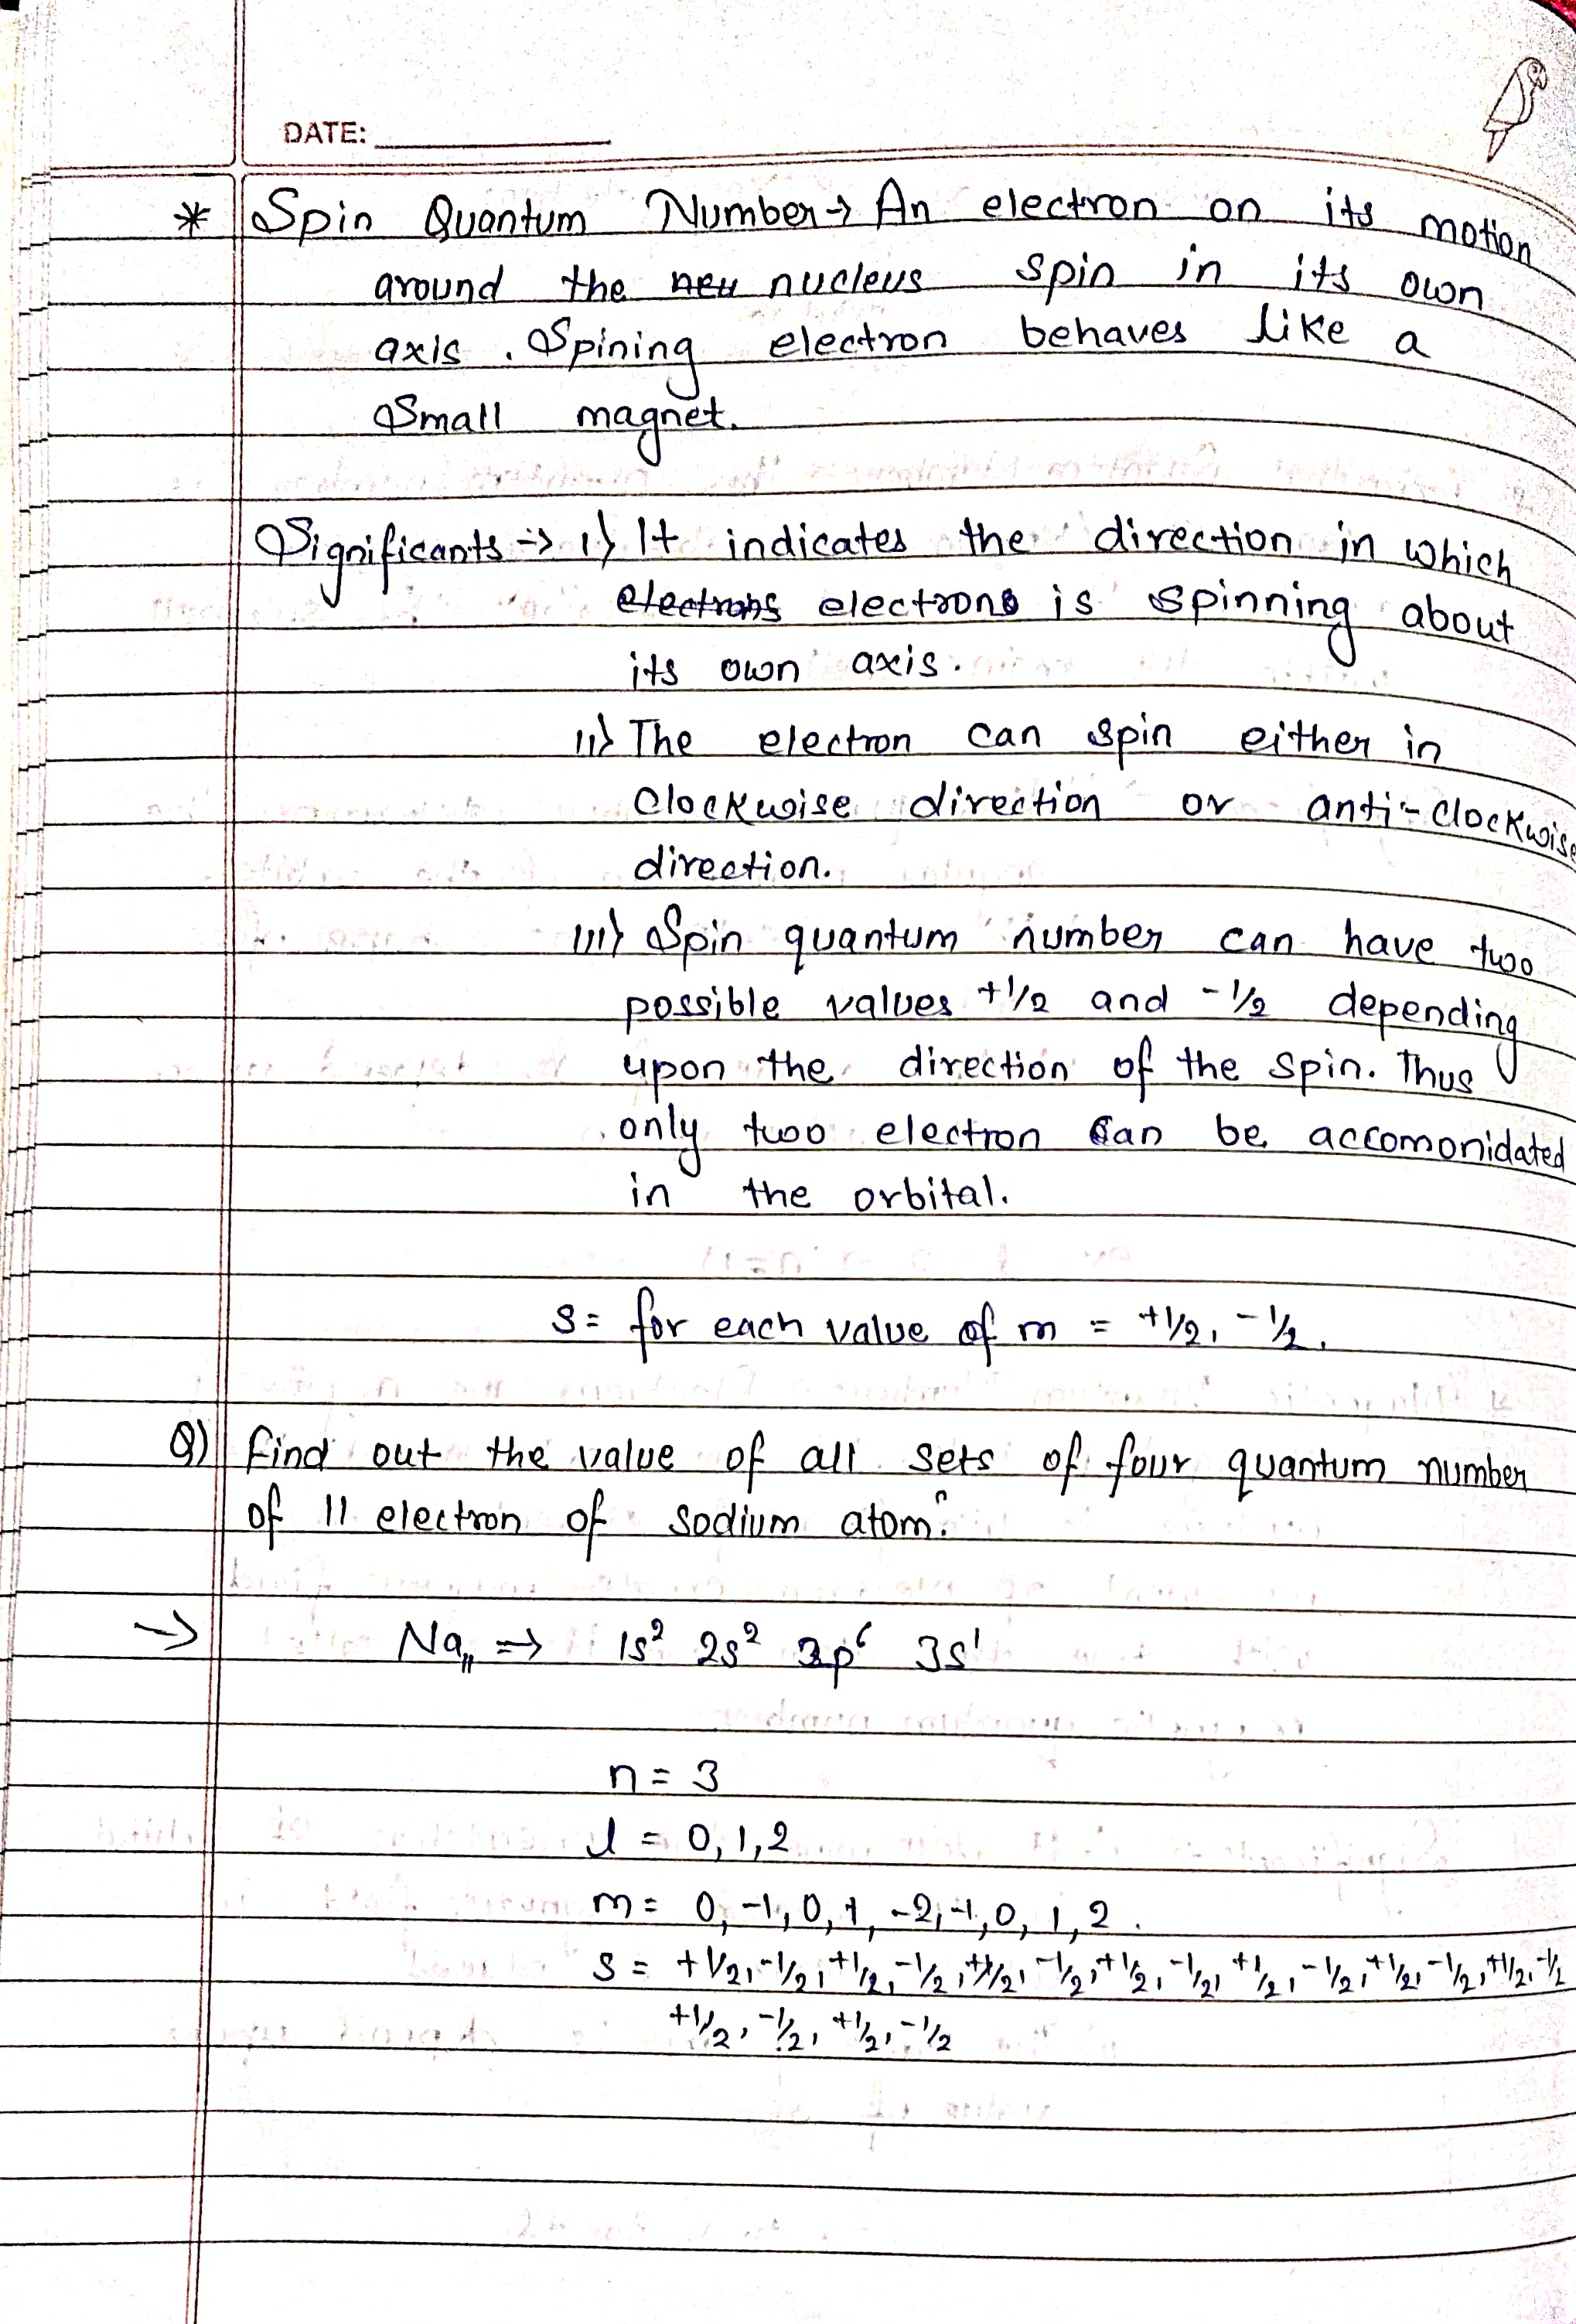 DATE:
* Spin Quantum Number → An electron on its motion
around the neu nucleus spin in its own
axis. Spining electron behaves like a
Small magnet.
Significants → i) It indicates the direction in which
electrons electrons is spinning about
its own axis.
ii) The electron can spin either in
Clockwise direction or anti-clockwise
direction.
iii) Spin quantum number can have two
possible values +1/2 and -1/2 depending
upon the direction of the spin. Thus
only two electron can be accomonidated
in the orbital.
s = for each value of m = +1/2, -1/2.
Q) Find out the value of all sets of four quantum number
of 11 electron of sodium atom?
→ Na₁₁ ⇒ 1s² 2s² 2p⁶ 3s¹
n = 3
l = 0, 1, 2
m = 0, -1, 0, 1, -2, -1, 0, 1, 2.
s = +1/2, -1/2, +1/2, -1/2, +1/2, -1/2, +1/2, -1/2, +1/2, -1/2, +1/2, -1/2, +1/2, -1/2
+1/2, -1/2, +1/2, -1/2